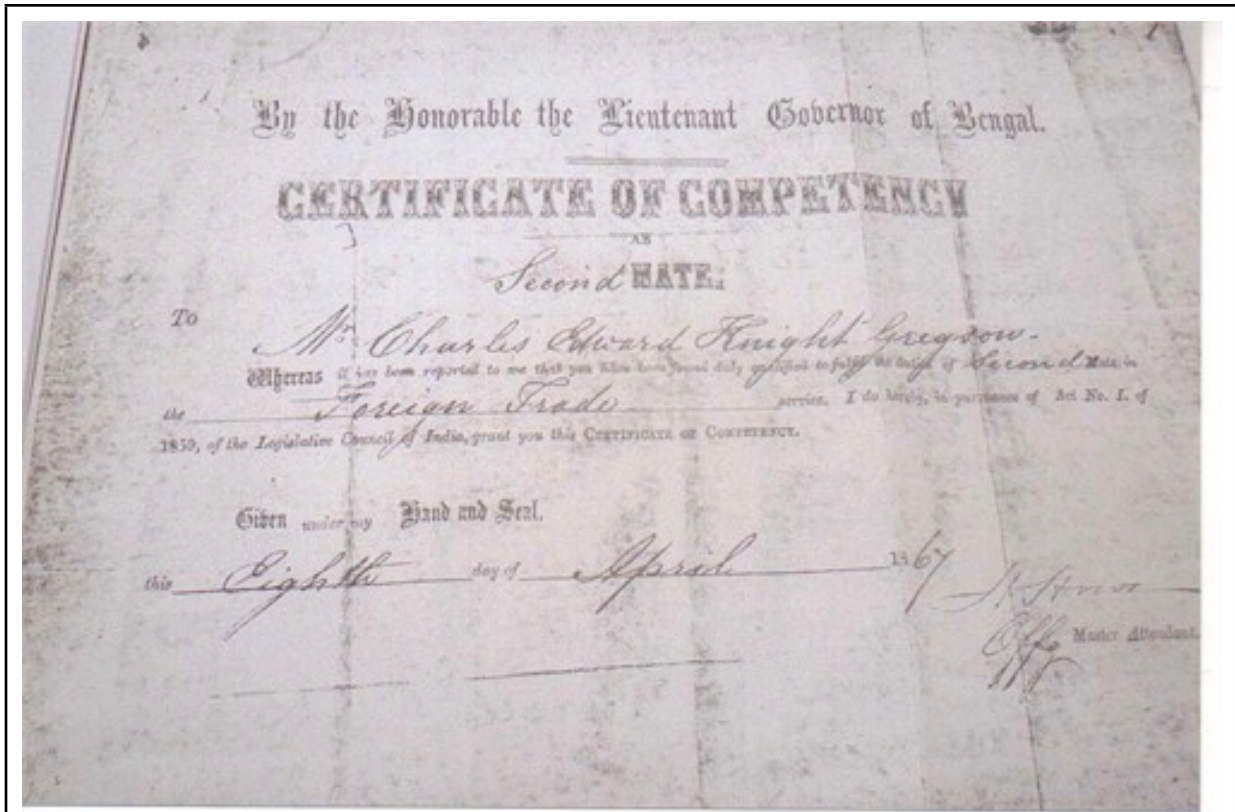 By the Honorable the Lieutenant Governor of Bengal.
CERTIFICATE OF COMPETENCY
AS
Second MATE.
To
Mr Charles Edward Knight Gregson.
Whereas it has been reported to me that you have been found duly qualified to fulfil the duties of Second Mate in
the Foreign Trade service. I do hereby, in pursuance of Act No. I. of
1859, of the Legislative Council of India, grant you this CERTIFICATE OF COMPETENCY.
Given under my Hand and Seal.
this Eighth day of April 1867
Offg Master Attendant.